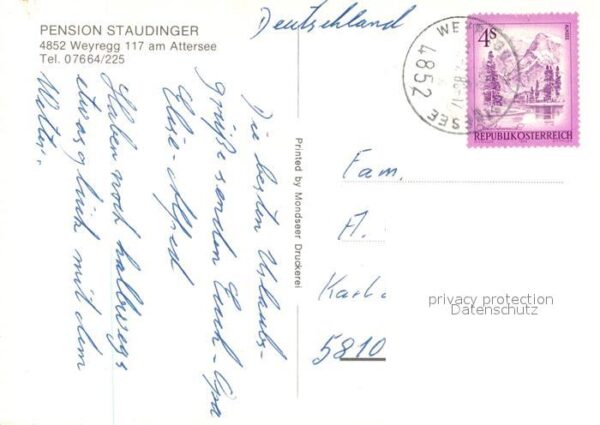 PENSION STAUDINGER
4852 Weyregg 117 am Attersee
Tel. 07664/225
Deutschland
4852
4S
REPUBLIK ÖSTERREICH
Die besten Urlaubs-
grüße senden Euch - Opa
Elise - Alfred
Haben noch halbwegs
etwas glück mit dem
Wetter.
Printed by Mondseer Druckerei
Fam.
A.
Karl.
5810
privacy protection
Datenschutz